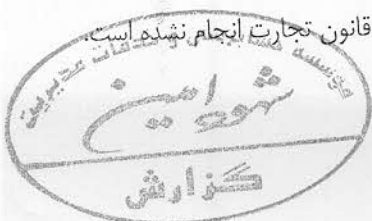 قانون تجارت انجام نشده است.
موسسه حسابرسی و خدمات مدیریت
شهود امین
گزارش